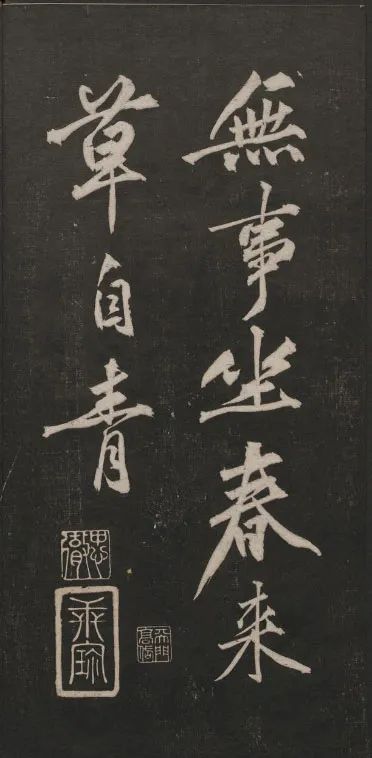 無事坐春来
草自青